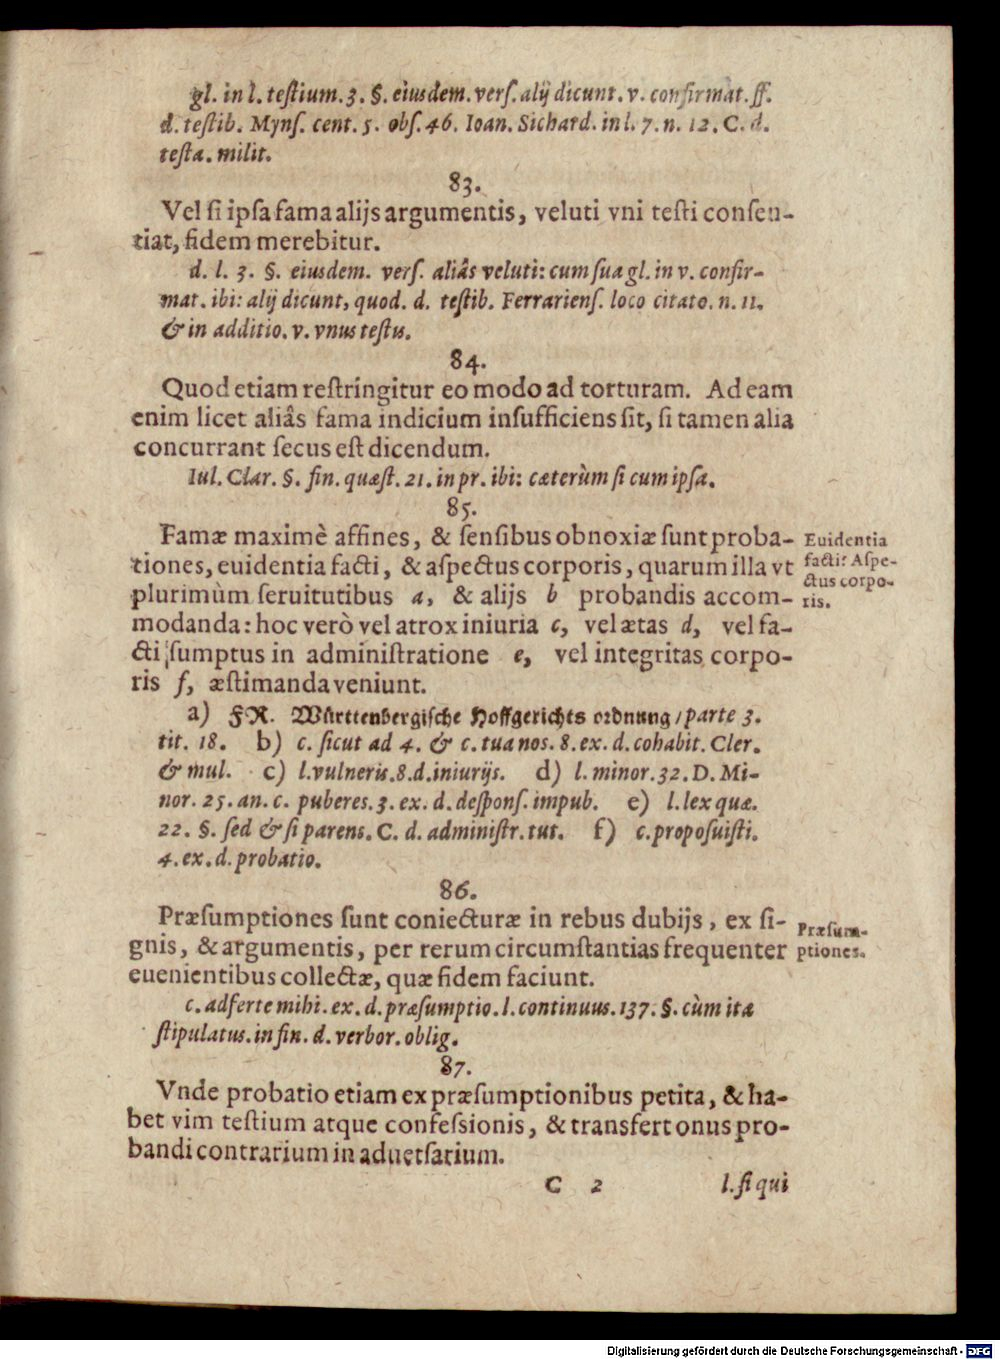 gl. in l. testium. 3. §. eiusdem. vers. alij dicunt. v. confirmat. ff.
d. testib. Myns. cent. 5. obs. 46. Ioan. Sichard. in l. 7. n. 12. C. d.
testa. milit.
83.
Vel si ipsa fama alijs argumentis, veluti vni testi consen-
tiat, fidem merebitur.
d. l. 3. §. eiusdem. vers. aliâs veluti: cum sua gl. in v. confir-
mat. ibi: alij dicunt, quod. d. testib. Ferrariens. loco citato. n. 11.
& in additio. v. vnus testus.
84.
Quod etiam restringitur eo modo ad torturam. Ad eam
enim licet aliâs fama indicium insufficiens sit, si tamen alia
concurrant secus est dicendum.
Iul. Clar. §. fin. quæst. 21. in pr. ibi: cæterùm si cum ipsa.
85.
Famæ maximè affines, & sensibus obnoxiæ sunt proba-
tiones, euidentia facti, & aspectus corporis, quarum illa vt
plurimùm seruitutibus a, & alijs b probandis accom-
modanda: hoc verò vel atrox iniuria c, vel ætas d, vel fa-
cti sumptus in administratione e, vel integritas corpo-
ris f, æstimanda veniunt.
Euidentia
facti: Aspe-
ctus corpo-
ris.
a) FR. Württenbergische Hoffgerichts ordnung / parte 3.
tit. 18. b) c. sicut ad 4. & c. tua nos. 8. ex. d. cohabit. Cler.
& mul. c) l. vulneris. 8. d. iniurijs. d) l. minor. 32. D. Mi-
nor. 25. an. c. puberes. 3. ex. d. despons. impub. e) l. lex quæ.
22. §. sed & si parens. C. d. administr. tut. f) c. proposuisti.
4. ex. d. probatio.
86.
Præsumptiones sunt coniecturæ in rebus dubijs, ex si-
gnis, & argumentis, per rerum circumstantias frequenter
euenientibus collectæ, quæ fidem faciunt.
Præsum-
ptiones.
c. adferte mihi. ex. d. præsumptio. l. continuus. 137. §. cùm ita
stipulatus. in fin. d. verbor. oblig.
87.
Vnde probatio etiam ex præsumptionibus petita, & ha-
bet vim testium atque confessionis, & transfert onus pro-
bandi contrarium in aduersarium.
C 2 l. si qui
Digitalisierung gefördert durch die Deutsche Forschungsgemeinschaft - DFG